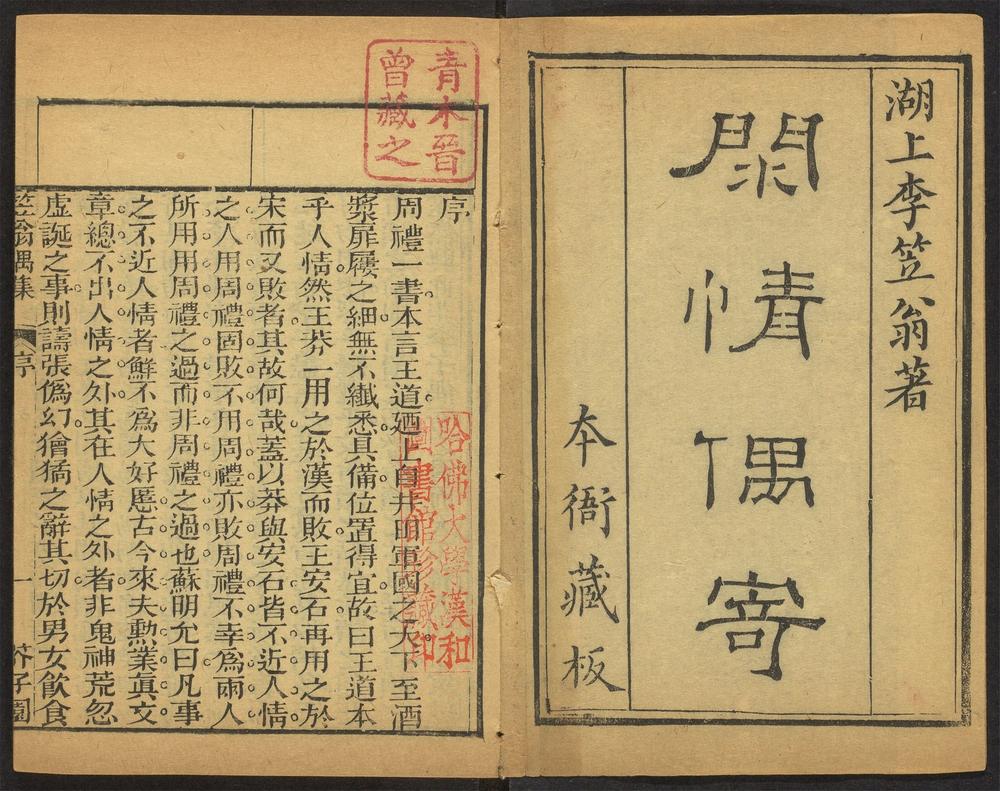 湖上李笠翁著
閑情偶寄
本衙藏板
青木晉
曾藏之
序
周禮一書本言王道廼上自井田軍國之大下至酒
漿扉屨之細無不纖悉具備位置得宜故曰王道本
乎人情然王莽一用之於漢而敗王安石再用之於
宋而又敗者其故何哉蓋以莽與安石皆不近人情
之人用周禮固敗不用周禮亦敗周禮不幸爲兩人
所用用周禮之過而非周禮之過也蘇明允曰凡事
之不近人情者鮮不爲大奸慝古今來大勳業眞文
章總不出人情之外其在人情之外者非鬼神荒忽
虛誕之事則譸張僞幻獪獝之辭其切於男女飲食
笠翁偶集 序 一 芥子園
哈佛大學漢和
圖書館珍藏印